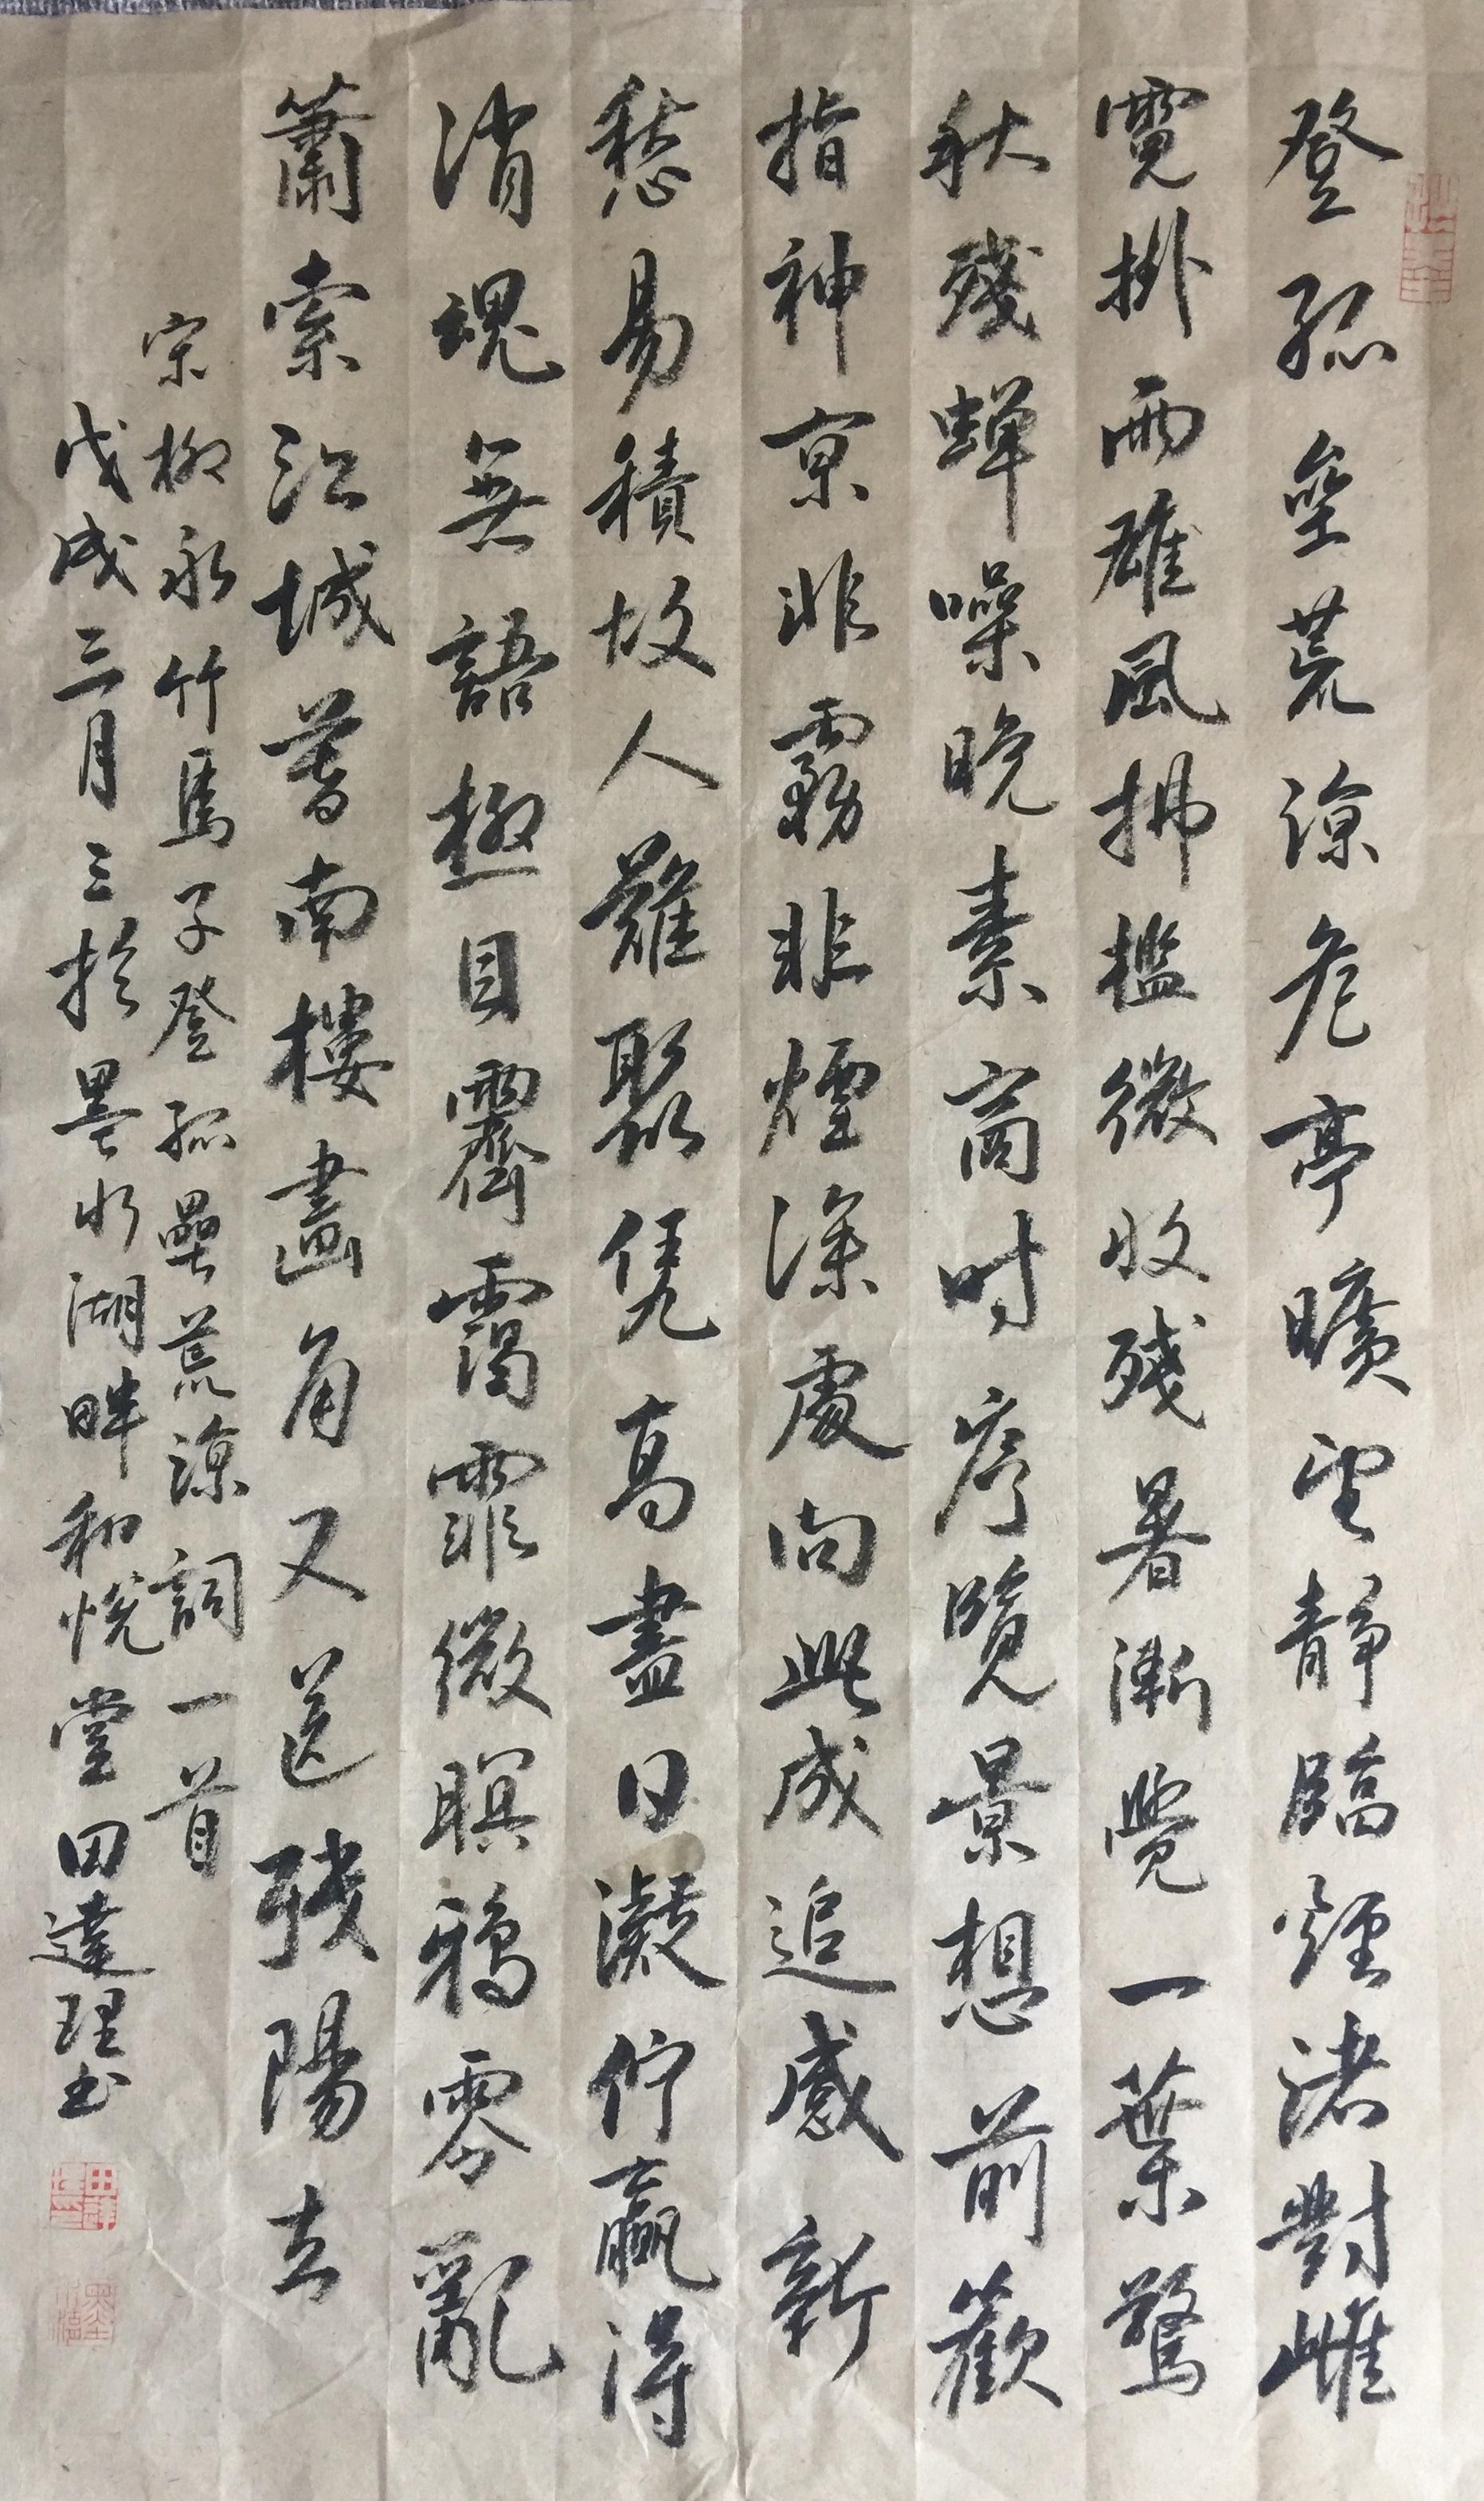 登孤壘荒涼危亭曠望靜臨煙渚對雌
霓掛雨雄風拂檻微收殘暑漸覺一葉驚
秋殘蟬噪晚素商時序覽景想前歡
指神京非霧非煙深處向此成追感新
愁易積故人難聚凭高盡日凝佇贏得
消魂無語極目霽靄霏微暝鴉零亂
蕭索江城暮南樓畫角又送殘陽去
宋柳永竹馬子登孤壘荒涼詞一首
戊戌三月三於墨水湖畔和悅堂田達理书